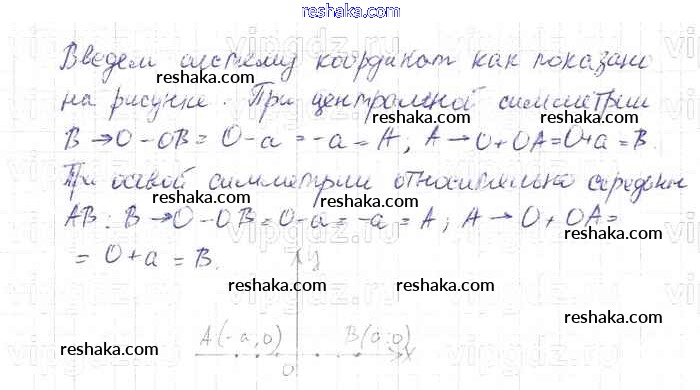 reshaka.com
Введем систему координат как показано
на рисунке. При центральной симметрии
B → O - OB = O - a = -a = A; A → O + OA = O + a = B.
При осевой симметрии относительно середины
AB: B → O - OB = O - a = -a = A; A → O + OA =
= O + a = B.
y
A(-a,0) B(a;0)
O x
reshaka.com
reshaka.com
reshaka.com
reshaka.com
reshaka.com
reshaka.com
reshaka.com
reshaka.com
reshaka.com
reshaka.com